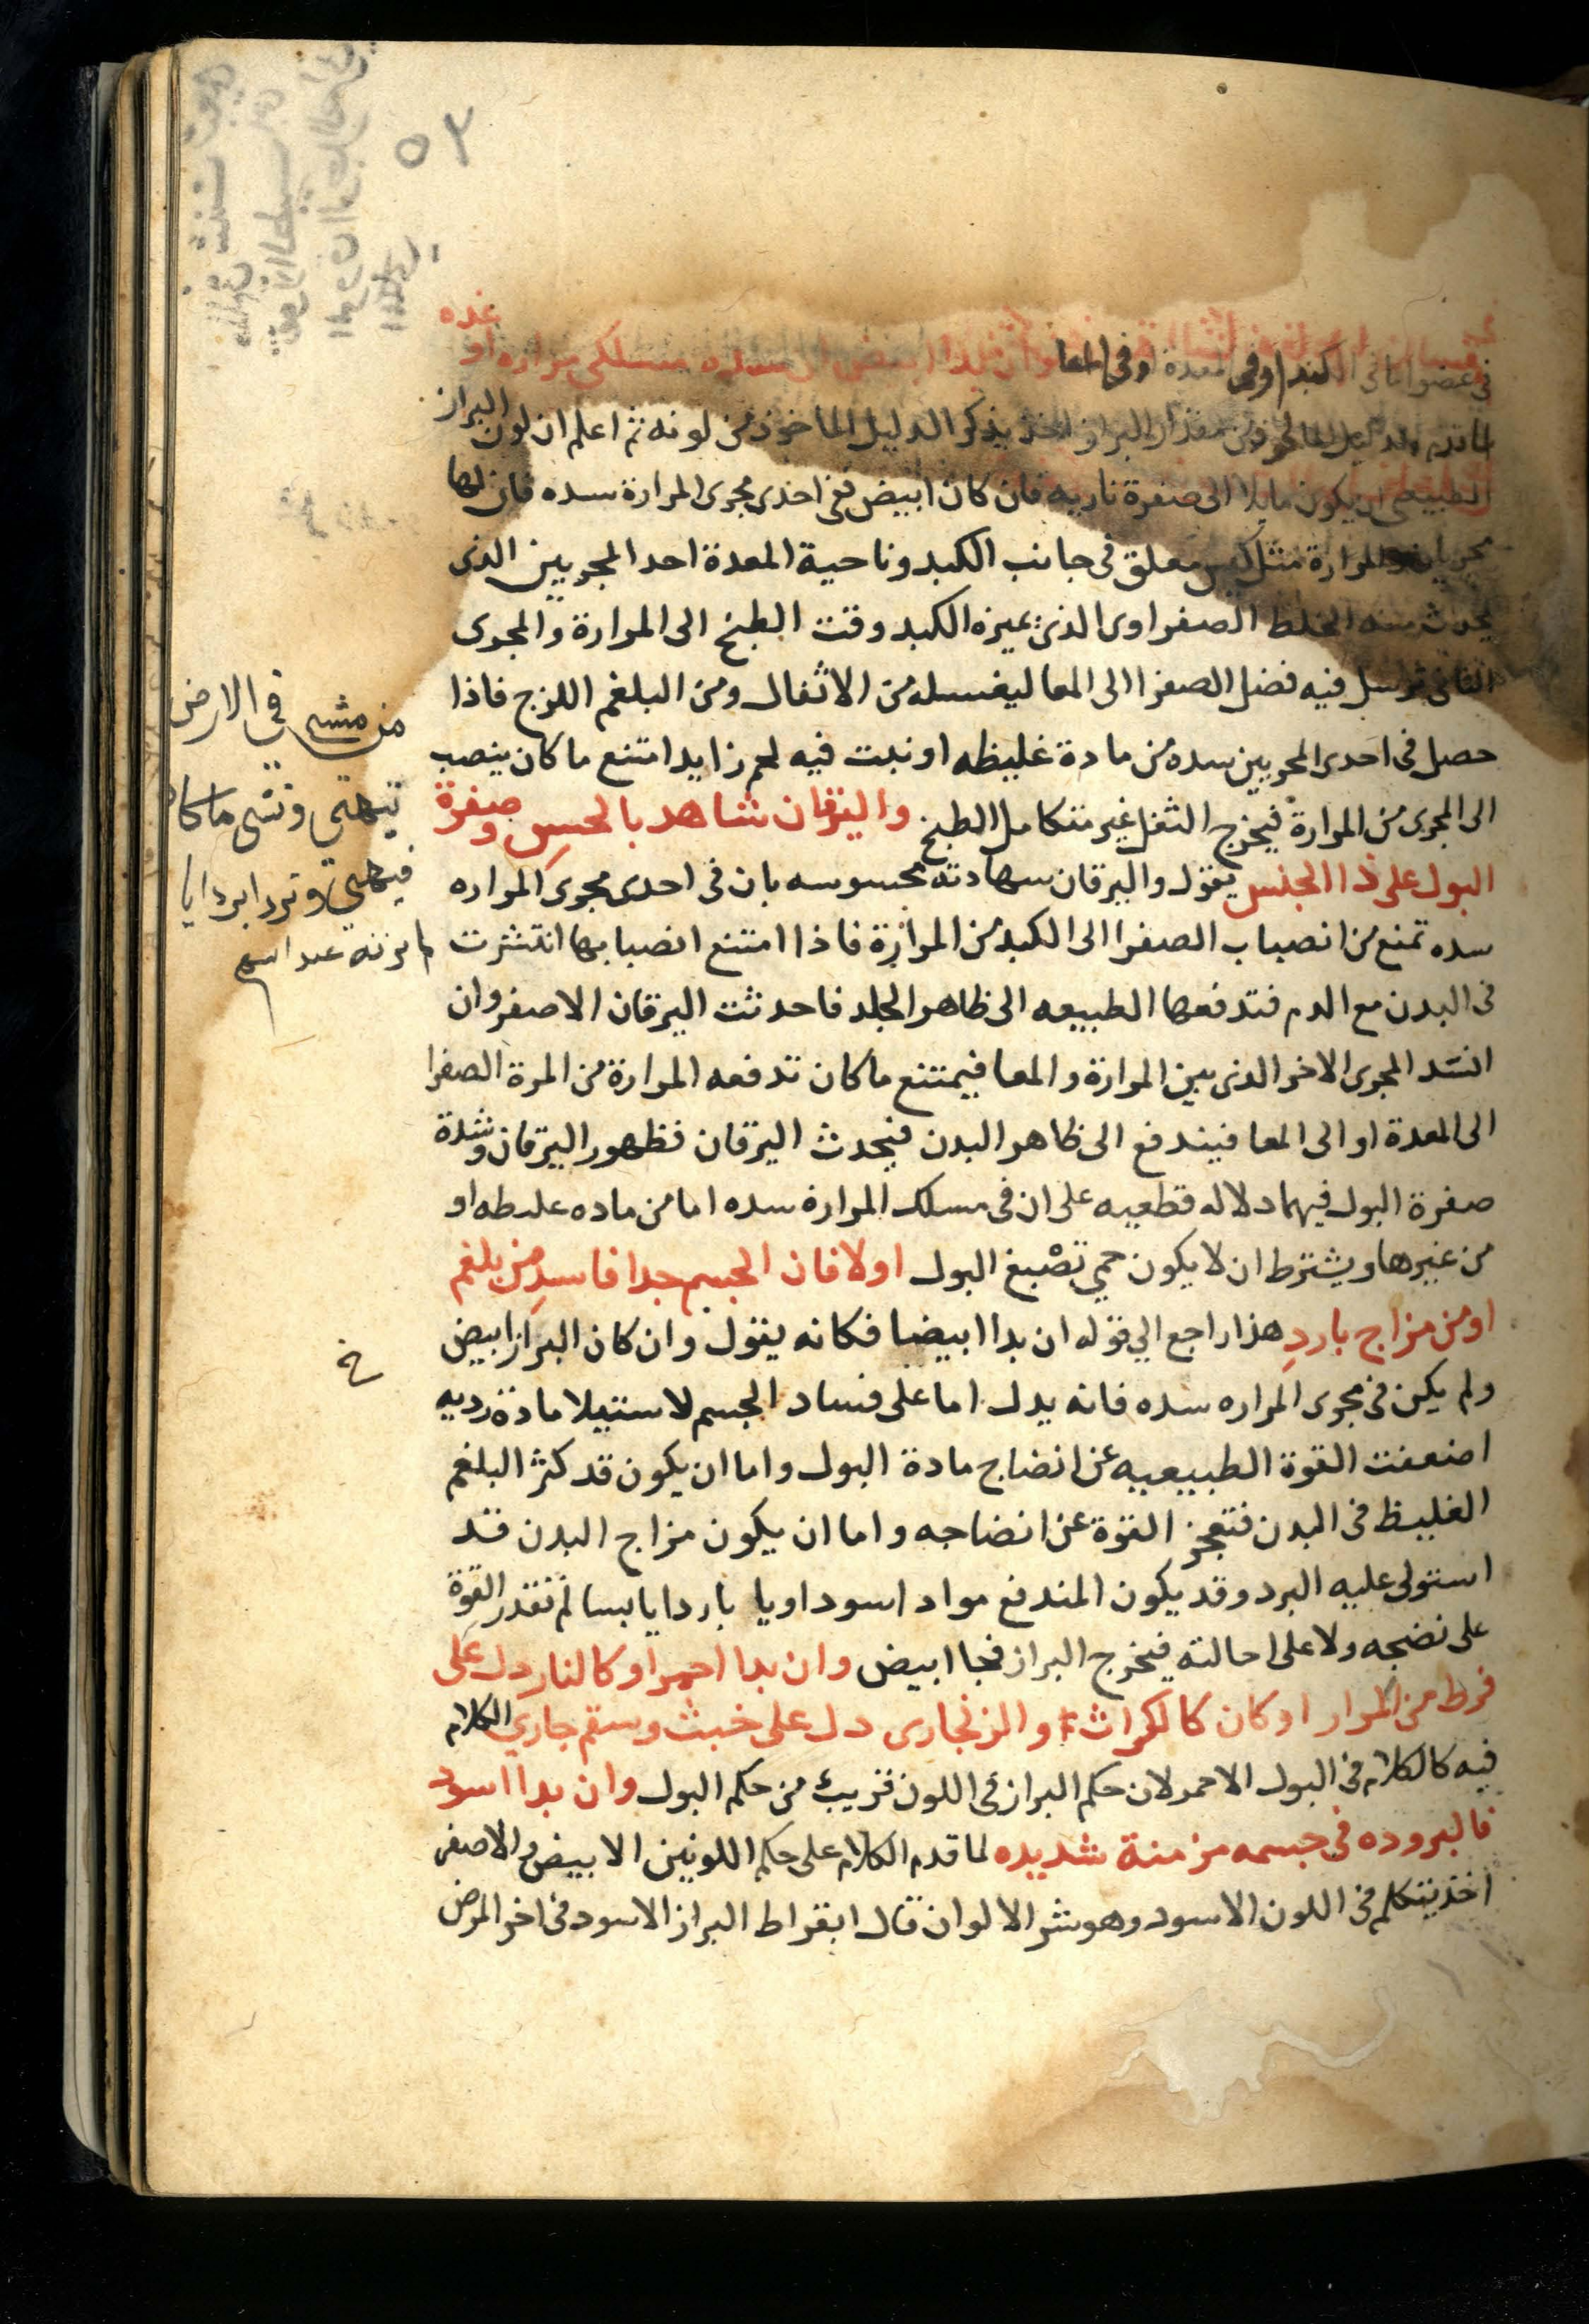 ٥٣
في عضو اما في الكبد او في المعدة او في المعا
لما تقدم الدليل الماخوذ من مقدار البراز اخذ يذكر الدليل الماخوذ من لونه ثم اعلم ان لون البراز
الطبيعي ان يكون مايلا الى صفرة ناريه فان كان ابيض ففي احدى مجرى المرارة سده فان لها
مجريان والمرارة مثل كيس معلق في جانب الكبد وناحية المعدة احد المجريين الذى
يحدث منه الخلط الصفراوى الذى يميزه الكبد وقت الطبخ الى المرارة والمجرى
الثانى ترسل فيه فضل الصفرا الى المعا ليغسله من الاثفال ومن البلغم اللزج فاذا
حصل في احدى المجريين سده من مادة غليظه او نبت فيه لحم زايد امتنع ما كان ينصب
الى المجرى من المرارة فيخرج الثفل غير متكامل الطبخ واليرقان شاهد بالحس وصفرة
البول على ذا الجنس يقول واليرقان سهادته محسوسه بان في احدى مجرى المراره
سده تمنع من انصباب الصفرا الى الكبد من المرارة فاذا امتنع انصبابها انتشرت
في البدن مع الدم فتدفعها الطبيعه الى ظاهر الجلد فاحدثت اليرقان الاصفر وان
انسد المجرى الاخر الذى بين المرارة والمعا فيمتنع ما كان تدفعه المرارة من المرة الصفرا
الى المعدة او الى المعا فيندفع الى ظاهر البدن فيحدث اليرقان فظهور اليرقان وشدة
صفرة البول فيهما دلاله قطعيه على ان في مسلك المرارة سده اما من ماده غلىظه او
من غيرها ويشترط ان لا يكون حمي تصبغ البول او لا فان الجسم جدا فاسد من بلغم
او من مزاج بارد هذا راجع الي قوله ان بدا ابيضا فكانه يقول وان كان البراز ابيض
ولم يكن في مجرى المراره سده فانه يدل اما على فساد الجسم لاستيلا مادة رديه
اضعفت القوة الطبيعيه عن انضاج مادة البول واما ان يكون قد كثر البلغم
الغليظ في البدن فتعجز القوة عن انضاجه واما ان يكون مزاج البدن قد
استولى عليه البرد وقد يكون المندفع مواد اسوداويا باردا يابسا لم تقدر القوة
على نضجه ولا على احالته فيخرج البراز فجا ابيض وان بدا احمر او كالنار دل على
فرط من المرار او كان كالكراث او الزنجارى دل على خبث وسقم جاري الكلام
فيه كالكلام في البول الاحمر لان حكم البراز في اللون قريب من حكم البول وان بدا اسود
فالبروده في جسمه مزمنة شديده لما قدم الكلام على حكم اللونين الابيض والاصفر
اخذ يتكلم في اللون الاسود وهو شر الالوان قال ابقراط البراز الاسود في اخر المرض
من مشى في الارض